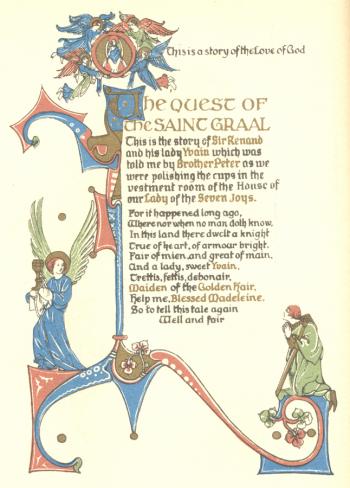 This is a story of the Love of God
The QUEST OF
the SAINT GRAAL
This is the story of Sir Renand
and his lady Yvain which was
told me by Brother Peter as we
were polishing the cups in the
vestment room of the House of
our Lady of the Seven Joys.
For it happened long ago,
Where nor when no man doth know,
In this land there dwelt a knight
True of heart, of armour bright.
Fair of mien, and great of main.
And a lady, sweet Yvain.
Trettis, fettis, debonair,
Maiden of the Golden Hair.
Help me, Blessed Madeleine.
So to tell this tale again
Well and fair